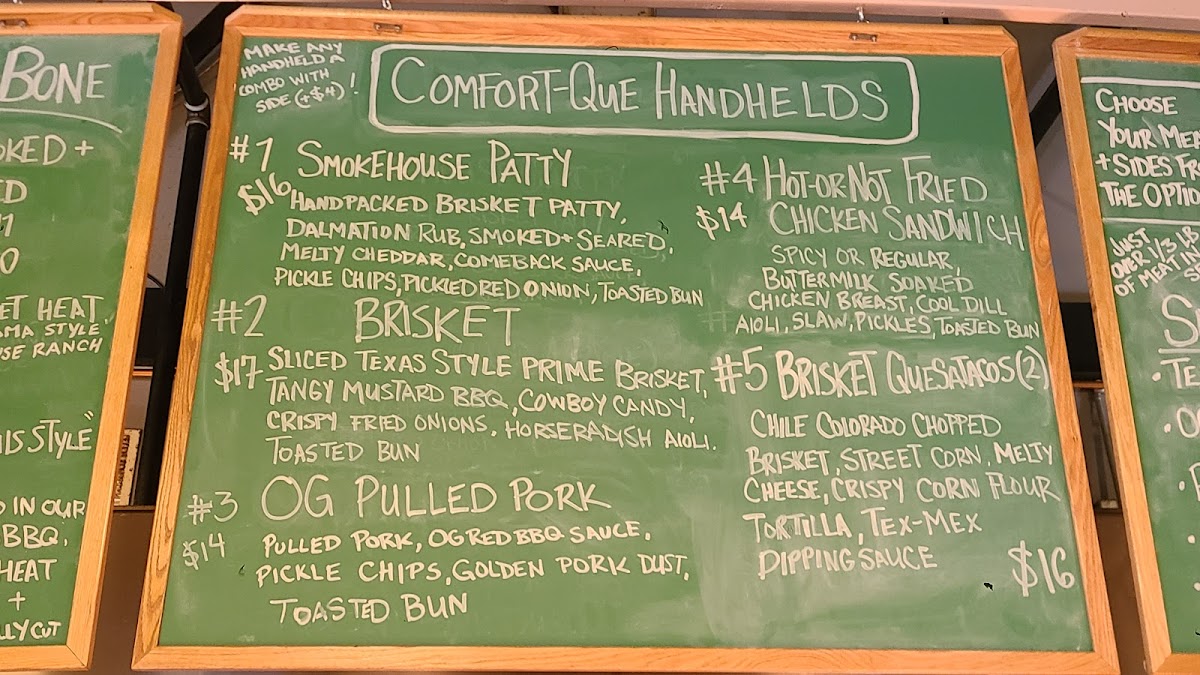 BONE
OKED +
ED
ET HEAT,
SMA STYLE,
SE RANCH
IS STYLE"
IN OUR
BBQ,
HEAT
+
LLY CUT
MAKE ANY
HANDHELD A
COMBO WITH
SIDE (+$4)!
COMFORT-QUE HANDHELDS
#1 SMOKEHOUSE PATTY
$16 HANDPACKED BRISKET PATTY,
DALMATION RUB, SMOKED + SEARED,
MELTY CHEDDAR, COMEBACK SAUCE,
PICKLE CHIPS, PICKLED RED ONION, TOASTED BUN
#2 BRISKET
$17 SLICED TEXAS STYLE PRIME BRISKET,
TANGY MUSTARD BBQ, COWBOY CANDY,
CRISPY FRIED ONIONS, HORSERADISH AIOLI.
TOASTED BUN
#3 OG PULLED PORK
$14 PULLED PORK, OG RED BBQ SAUCE,
PICKLE CHIPS, GOLDEN PORK DUST,
TOASTED BUN
#4 HOT-OR-NOT FRIED
$14 CHICKEN SANDWICH
SPICY OR REGULAR,
BUTTERMILK SOAKED
CHICKEN BREAST, COOL DILL
AIOLI, SLAW, PICKLES, TOASTED BUN
#5 BRISKET QUESATACOS (2)
CHILE COLORADO CHOPPED
BRISKET, STREET CORN, MELTY
CHEESE, CRISPY CORN FLOUR
TORTILLA, TEX-MEX
DIPPING SAUCE $16
CHOOSE
YOUR MEA
+ SIDES FR
THE OPTIO
JUST
OVER 1/3 LB
OF MEAT IN
S
• TE